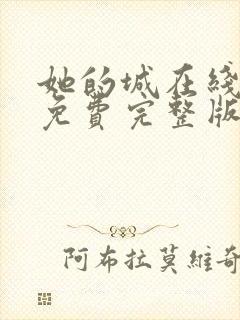 她的城在綫
免費完整版
阿布拉莫維奇